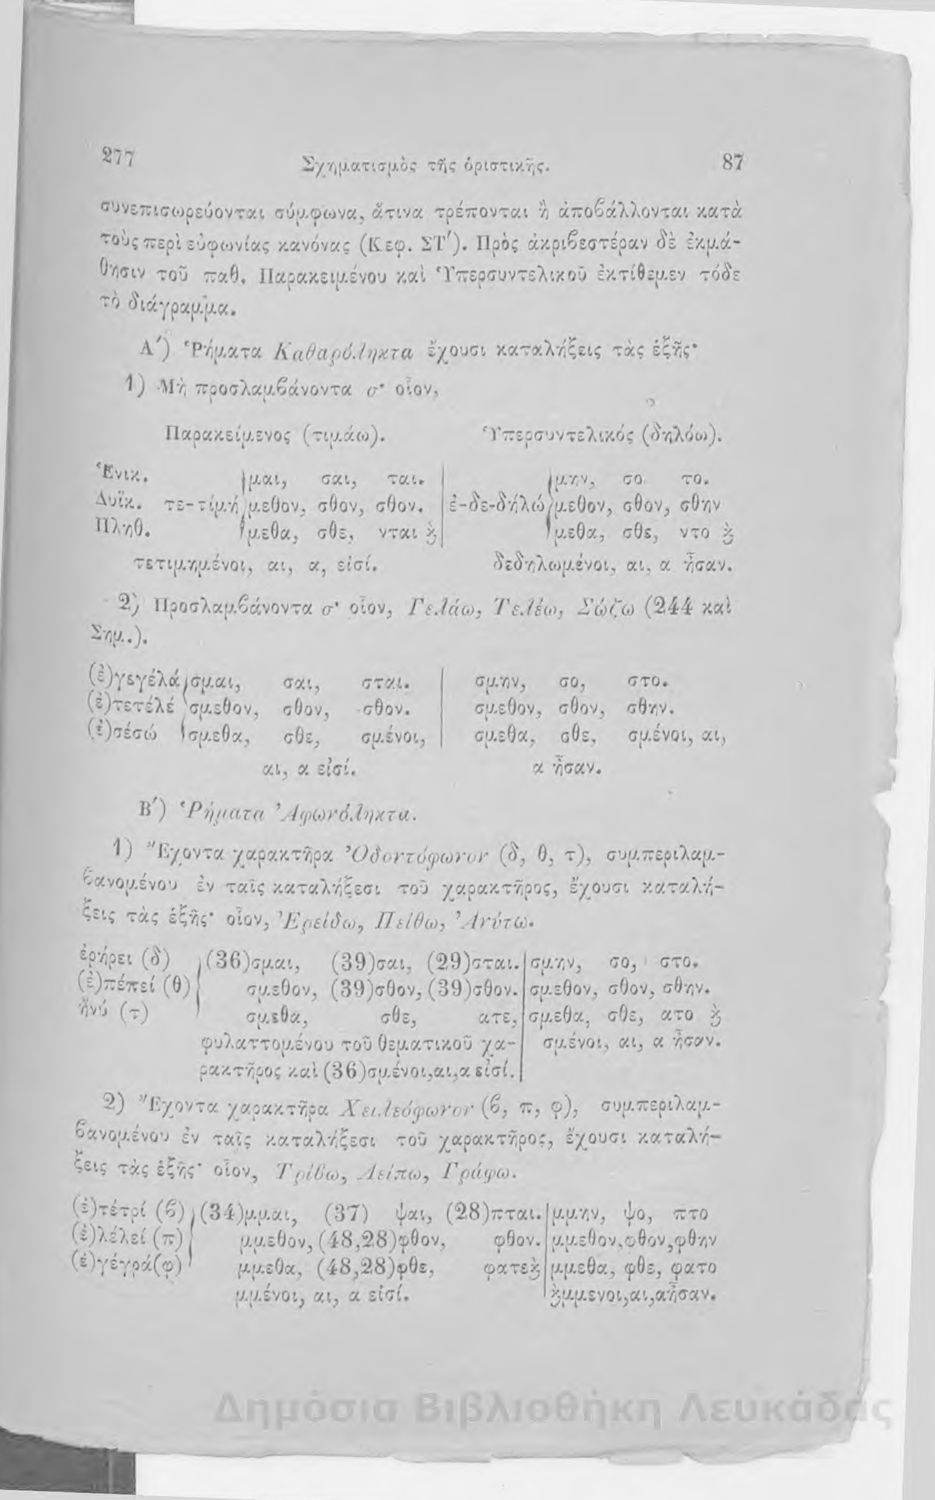 277 Σχηματισμὸς τῆς ὁριστικῆς. 87
συνεπισωρεύονται σύμφωνα, ἅτινα τρέπονται ἢ ἀποϐάλλονται κατὰ
τοὺς περὶ εὐφωνίας κανόνας (Κεφ. ΣΤ'). Πρὸς ἀκριϐεστέραν δὲ ἐκμά-
θησιν τοῦ παθ. Παρακειμένου καὶ Ὑπερσυντελικοῦ ἐκτίθεμεν τόδε
τὸ διάγραμμα.
Α') Ῥήματα Καθαρόληκτα ἔχουσι καταλήξεις τὰς ἑξῆς·
1) Μὴ προσλαμϐάνοντα σ· οἷον,
Παρακείμενος (τιμάω). Ὑπερσυντελικός (δηλόω).
Ἑνικ. μαι, σαι, ται. μην, σο το.
Δυϊκ. τε-τίμη μεθον, σθον, σθον. ἐ-δε-δηλώ μεθον, σθον, σθην
Πληθ. μεθα, σθε, νται ϗ μεθα, σθε, ντο ϗ
τετιμημένοι, αι, α, εἰσί. δεδηλωμένοι, αι, α ἦσαν.
2) Προσλαμϐάνοντα σ· οἷον, Γελάω, Τελέω, Σώζω (244 καὶ
Σημ.).
(ἐ)γεγέλα σμαι, σαι, σται. σμην, σο, στο.
(ἐ)τετέλέ σμεθον, σθον, σθον. σμεθον, σθον, σθην.
(ἐ)σέσώ σμεθα, σθε, σμένοι, σμεθα, σθε, σμένοι, αι,
αι, α εἰσί. α ἦσαν.
Β') Ῥήματα Ἀφωνόληκτα.
1) Ἔχοντα χαρακτῆρα Ὀδοντόφωνον (δ, θ, τ), συμπεριλαμ-
ϐανομένου ἐν ταῖς καταλήξεσι τοῦ χαρακτῆρος, ἔχουσι καταλή-
ξεις τὰς ἑξῆς· οἷον, Ἐρείδω, Πείθω, Ἀνύτω.
ἐρήρει (δ) (36)σμαι, (39)σαι, (29)σται. σμην, σο, στο.
(ἐ)πέπεί (θ) σμεθον, (39)σθον, (39)σθον. σμεθον, σθον, σθην.
ἤνύ (τ) σμεθα, σθε, ατε, σμεθα, σθε, ατο ϗ
φυλαττομένου τοῦ θεματικοῦ χα- σμένοι, αι, α ἦσαν.
ρακτῆρος καὶ (36)σμένοι,αι,α εἰσί.
2) Ἔχοντα χαρακτῆρα Χειλεόφωνον (ϐ, π, φ), συμπεριλαμ-
ϐανομένου ἐν ταῖς καταλήξεσι τοῦ χαρακτῆρος, ἔχουσι καταλή-
ξεις τὰς ἑξῆς· οἷον, Τρίϐω, Λείπω, Γράφω.
(ἐ)τέτρί (ϐ) (34)μμαι, (37) ψαι, (28)πται. μμην, ψο, πτο
(ἐ)λέλεί (π) μμεθον, (48,28)φθον, φθον. μμεθον,φθον,φθην
(ἐ)γέγρά(φ) μμεθα, (48,28)φθε, φατεϗ μμεθα, φθε, φατο
μμένοι, αι, α εἰσί. ϗμμενοι,αι,αἦσαν.
Δημόσια Βιβλιοθήκη Λευκάδας